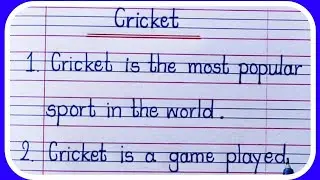 Cricket
1. Cricket is the most popular
sport in the world.
2. Cricket is a game played